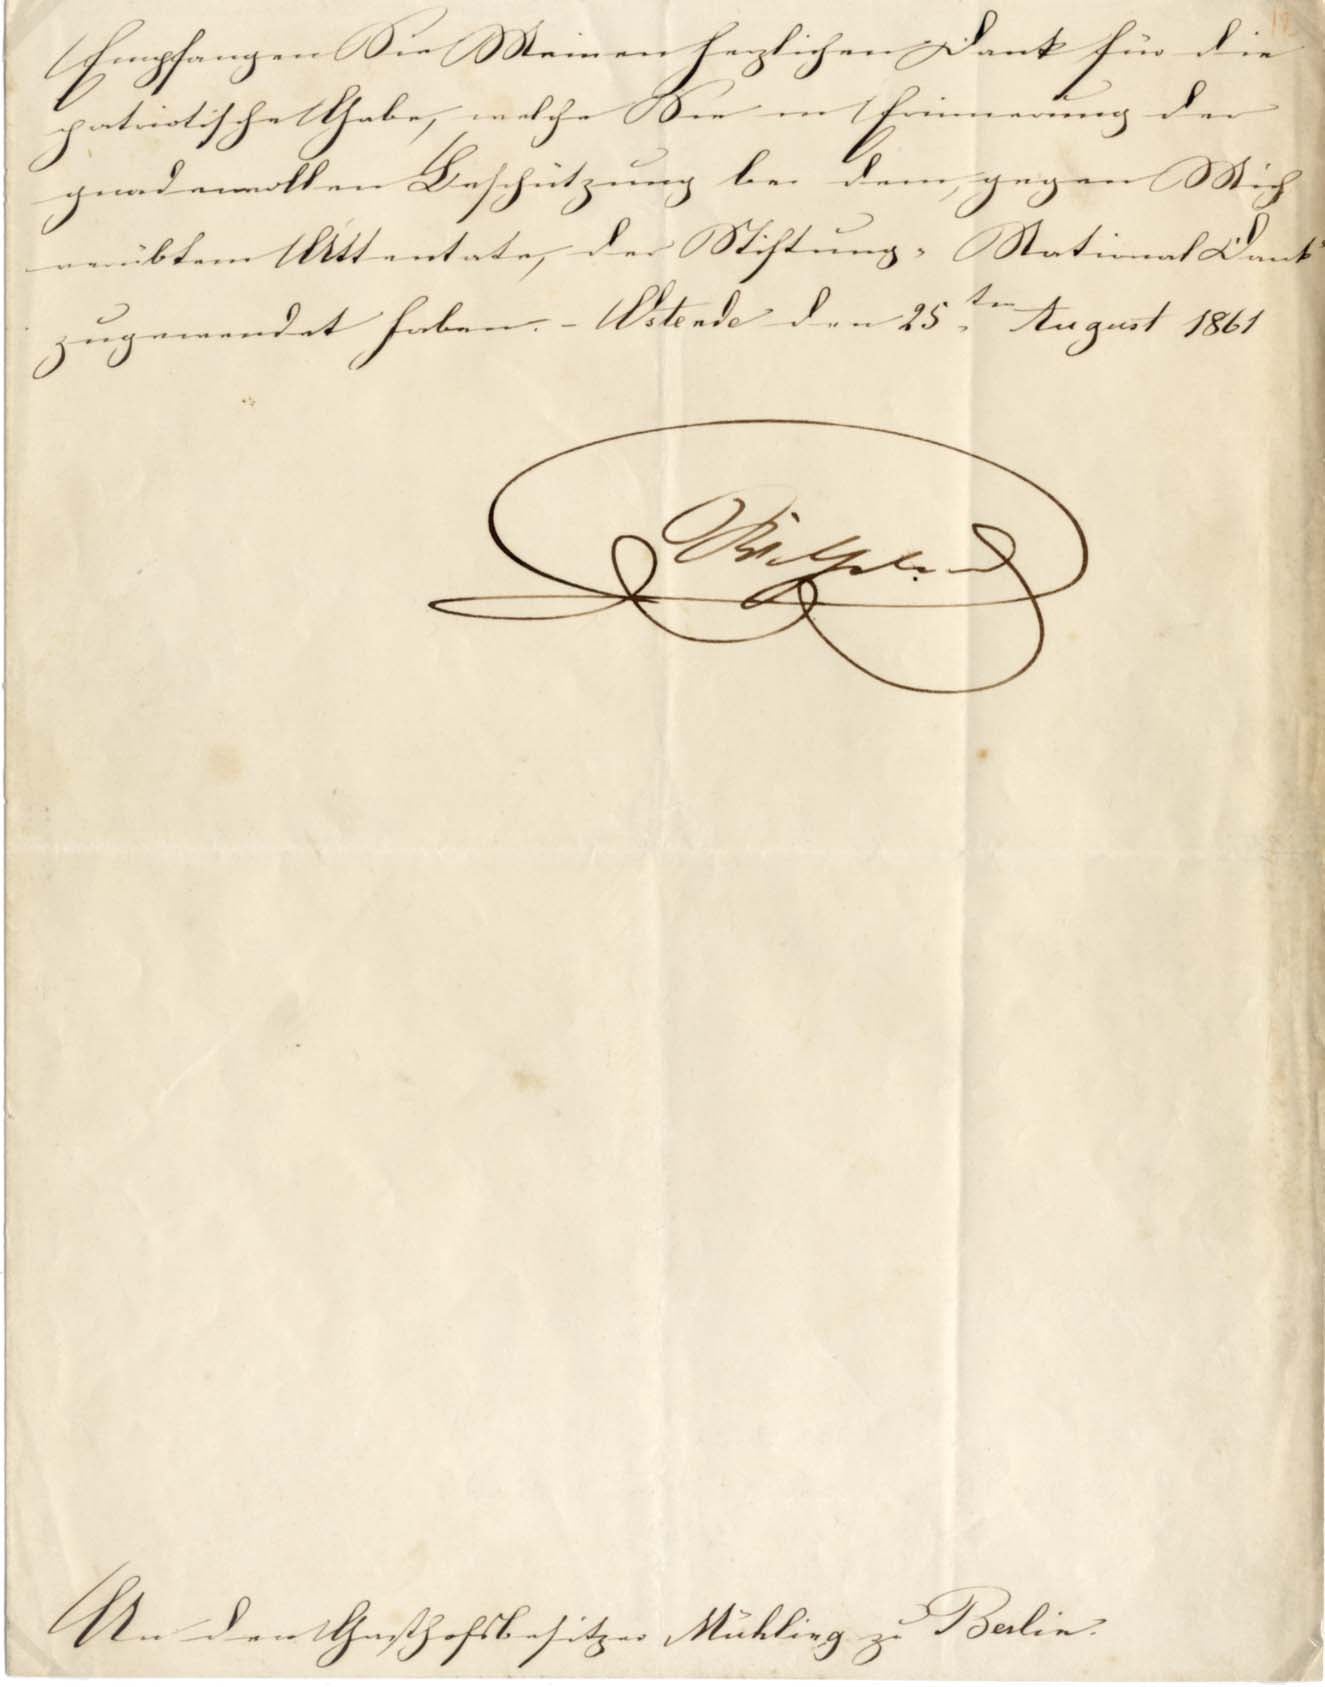 Empfangen Sie Meinen herzlichen Dank für die
patriotische Gabe, welche Sie in Erinnerung der
gnadenvollen Beschützung bei dem, gegen Mich
verübtem Attentate, der Stiftung, National Dank
zugewendet haben. - Ostende den 25ten August 1861
Wilhelm
An den Gasthofsbesitzer Mühling zu Berlin.